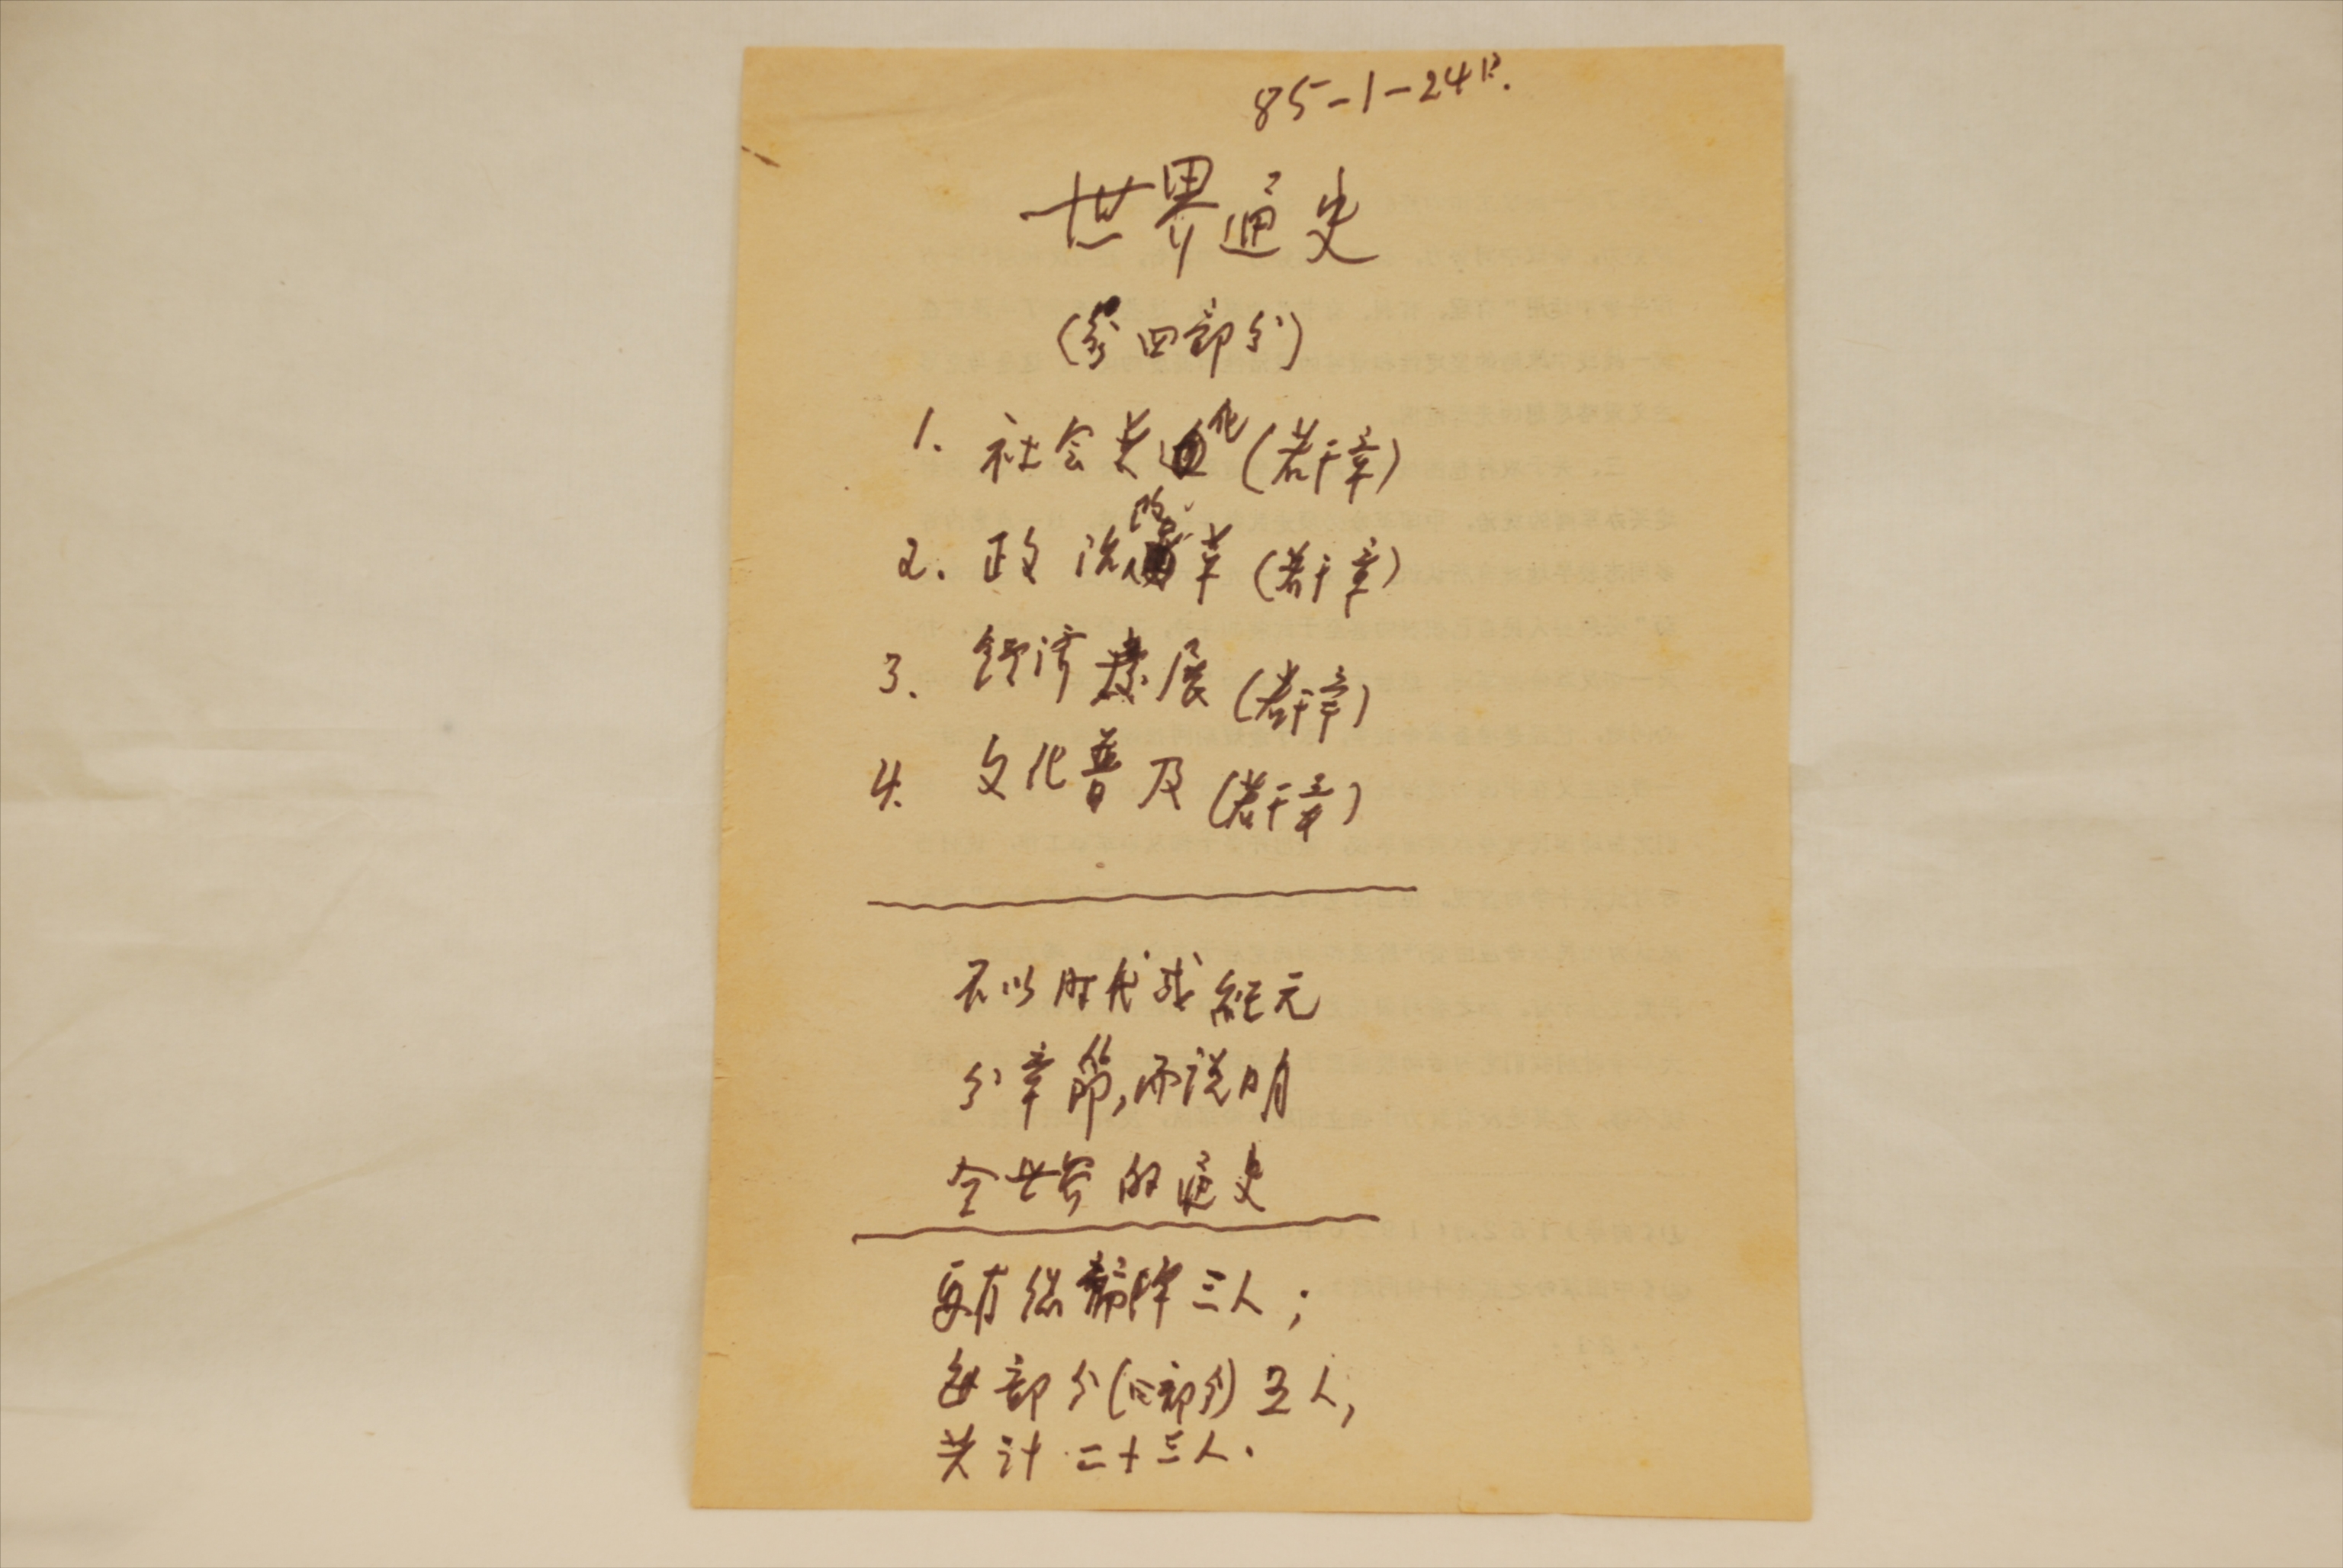 85-1-24日.
世界通史
(分四部分)
1. 社会 化(若干章)
2. 政治改革(若干章)
3. 经济发展(若干章)
4. 文化普及(若干章)
不以时代或纪元
分章节,而说明
全世界的通史
要有总编辑三人;
每部分(四部分)五人,
共计二十三人.